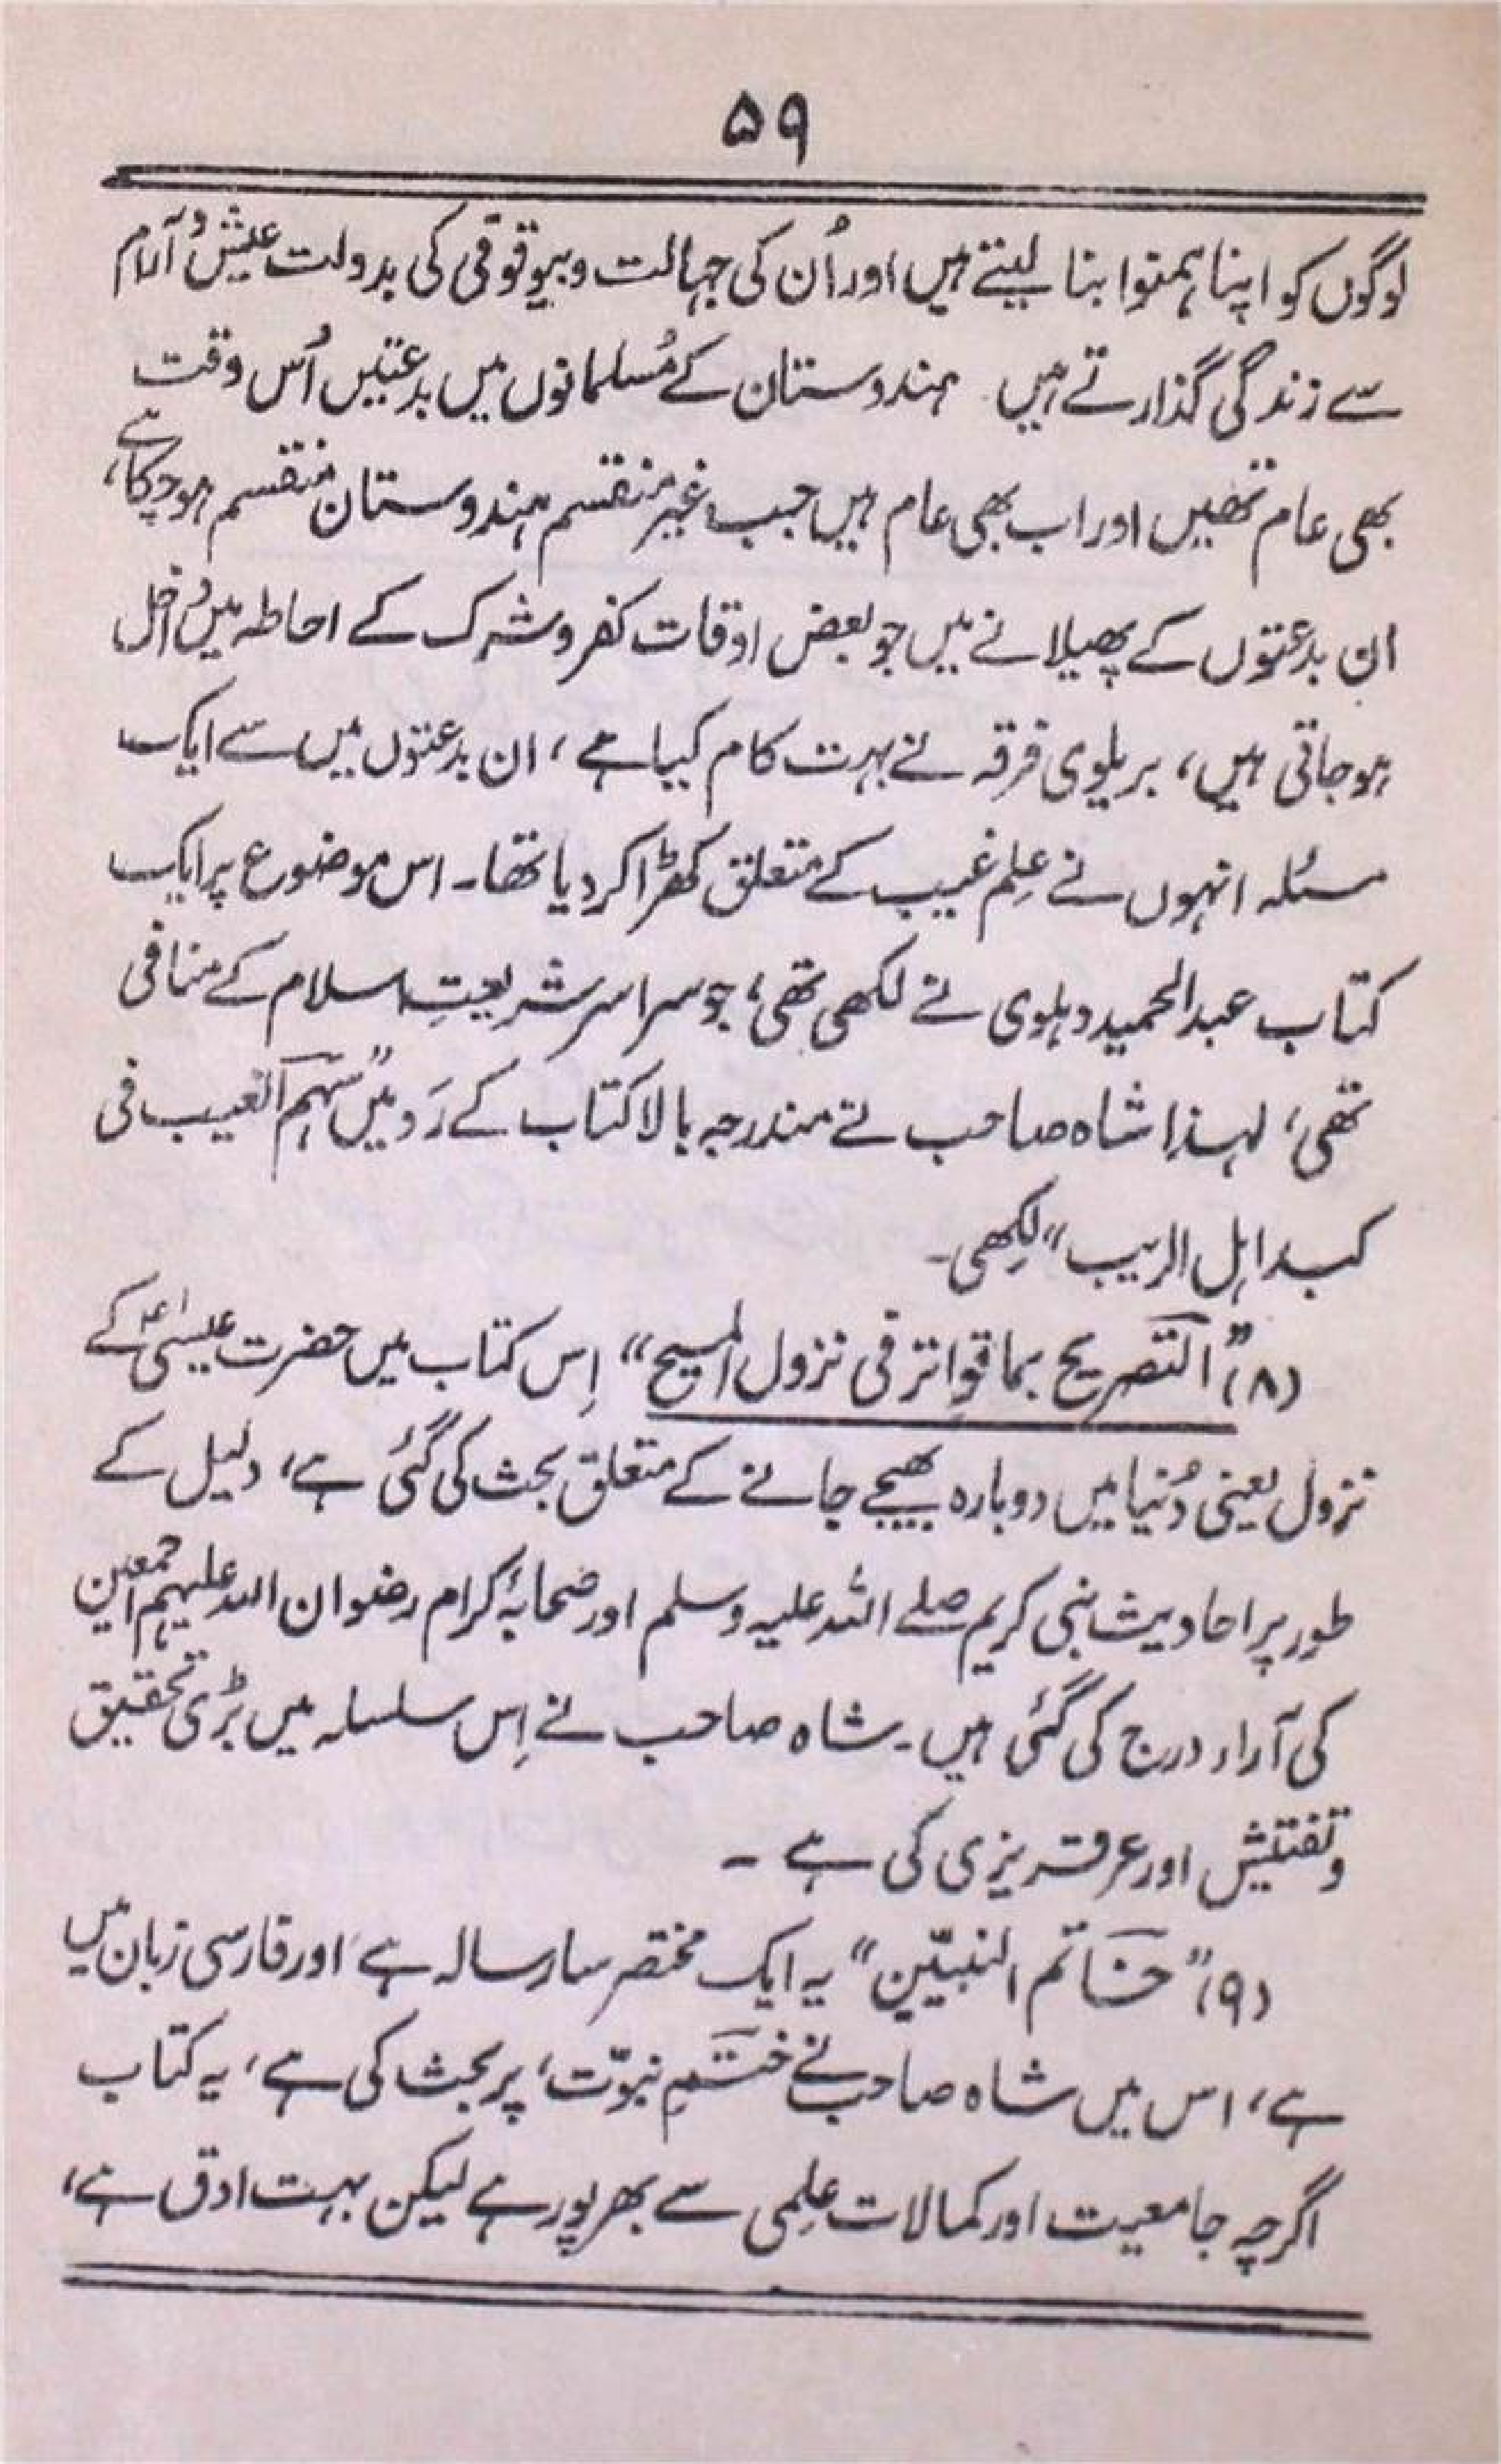 ۵۹
لوگوں کو اپنا ہمنوا بنا لیتے ہیں اور اُن کی جہالت و بیوقوفی کی بدولت عیش و آرام
سے زندگی گذارتے ہیں۔ ہندوستان کے مُسلمانوں میں بدعتیں اُس وقت
بھی عام تھیں اور اب بھی عام ہیں جب غیر منقسم ہندوستان منقسم ہو چکا ہے،
ان بدعتوں کے پھیلانے میں جو بعض اوقات کفر و شرک کے احاطہ میں داخل
ہو جاتی ہیں، بریلوی فرقہ نے بہت کام کیا ہے، ان بدعتوں میں سے ایک
مسئلہ انہوں نے عِلم غیب کے متعلق کھڑا کر دیا تھا۔ اس موضوع پر ایک
کتاب عبدالحمید دہلوی نے لکھی تھی، جو سراسر شریعتِ اسلام کے منافی
تھی، لہذا شاہ صاحب نے مندرجہ بالا کتاب کے رَد میں "سہم الغیب فی
کبد اہل الریب" لِکھی۔
(۸) "التصریح بما تواتر فی نزول المسیح" اِس کتاب میں حضرت عیسیٰؑ کے
نزول یعنی دُنیا میں دوبارہ بھیجے جانے کے متعلق بحث کی گئی ہے، دلیل کے
طور پر احادیث نبی کریم صلے اللہ علیہ وسلم اور صحابۂ کرام رضوان اللہ علیہم اجمعین
کی آراء درج کی گئی ہیں۔ شاہ صاحب نے اِس سلسلہ میں بڑی تحقیق
و تفتیش اور عرقریزی کی ہے ۔
(۹) "خاتم النبیّین" یہ ایک مختصر سا رسالہ ہے اور فارسی زبان میں
ہے، اس میں شاہ صاحب نے ختمِ نبوّت، پر بحث کی ہے، یہ کتاب
اگرچہ جامعیت اور کمالات عِلمی سے بھرپور ہے لیکن بہت ادق ہے،